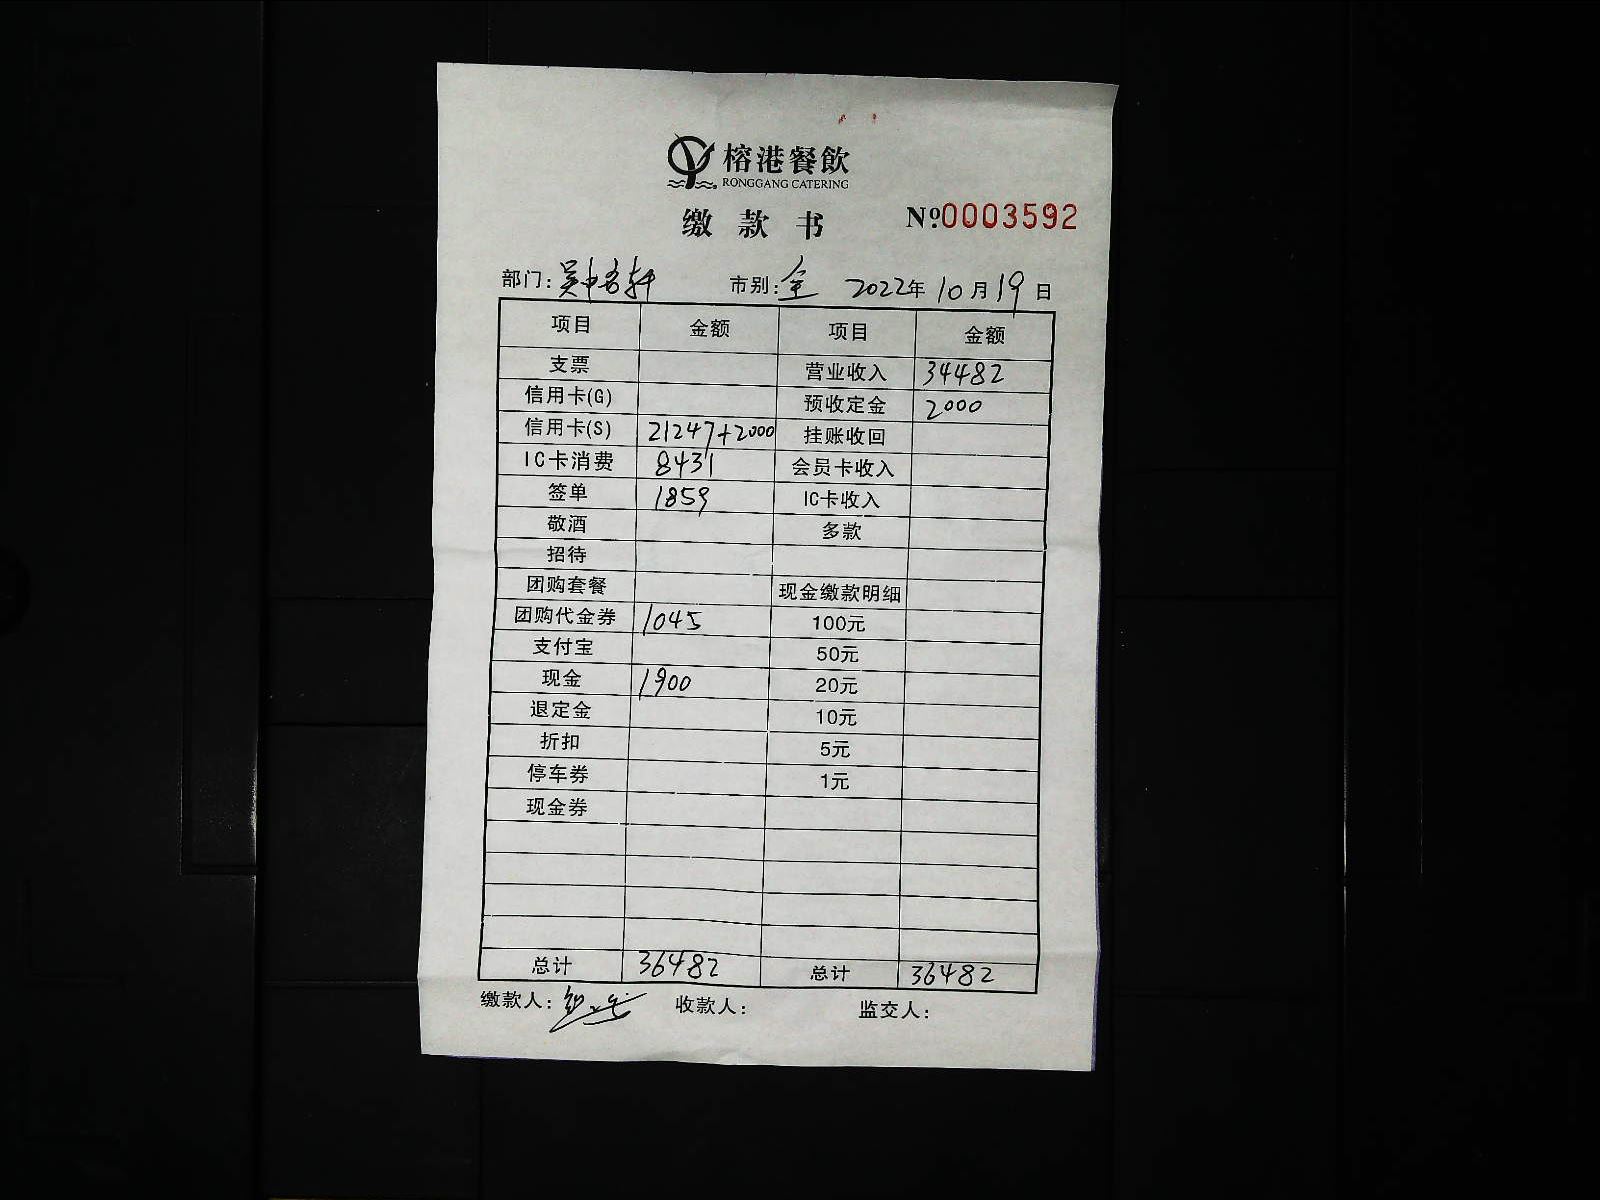 榕港餐飲
RONGGANG CATERING
缴款书 №0003592
部门:吴中名轩 市别:全 2022年10月19日
项目 金额 项目 金额
支票 营业收入 34482
信用卡(G) 预收定金 2000
信用卡(S) 21247+2000 挂账收回
IC卡消费 8431 会员卡收入
签单 1859 IC卡收入
敬酒 多款
招待
团购套餐 现金缴款明细
团购代金券 1045 100元
支付宝 50元
现金 1900 20元
退定金 10元
折扣 5元
停车券 1元
现金券
总计 36482 总计 36482
缴款人: 收款人: 监交人: